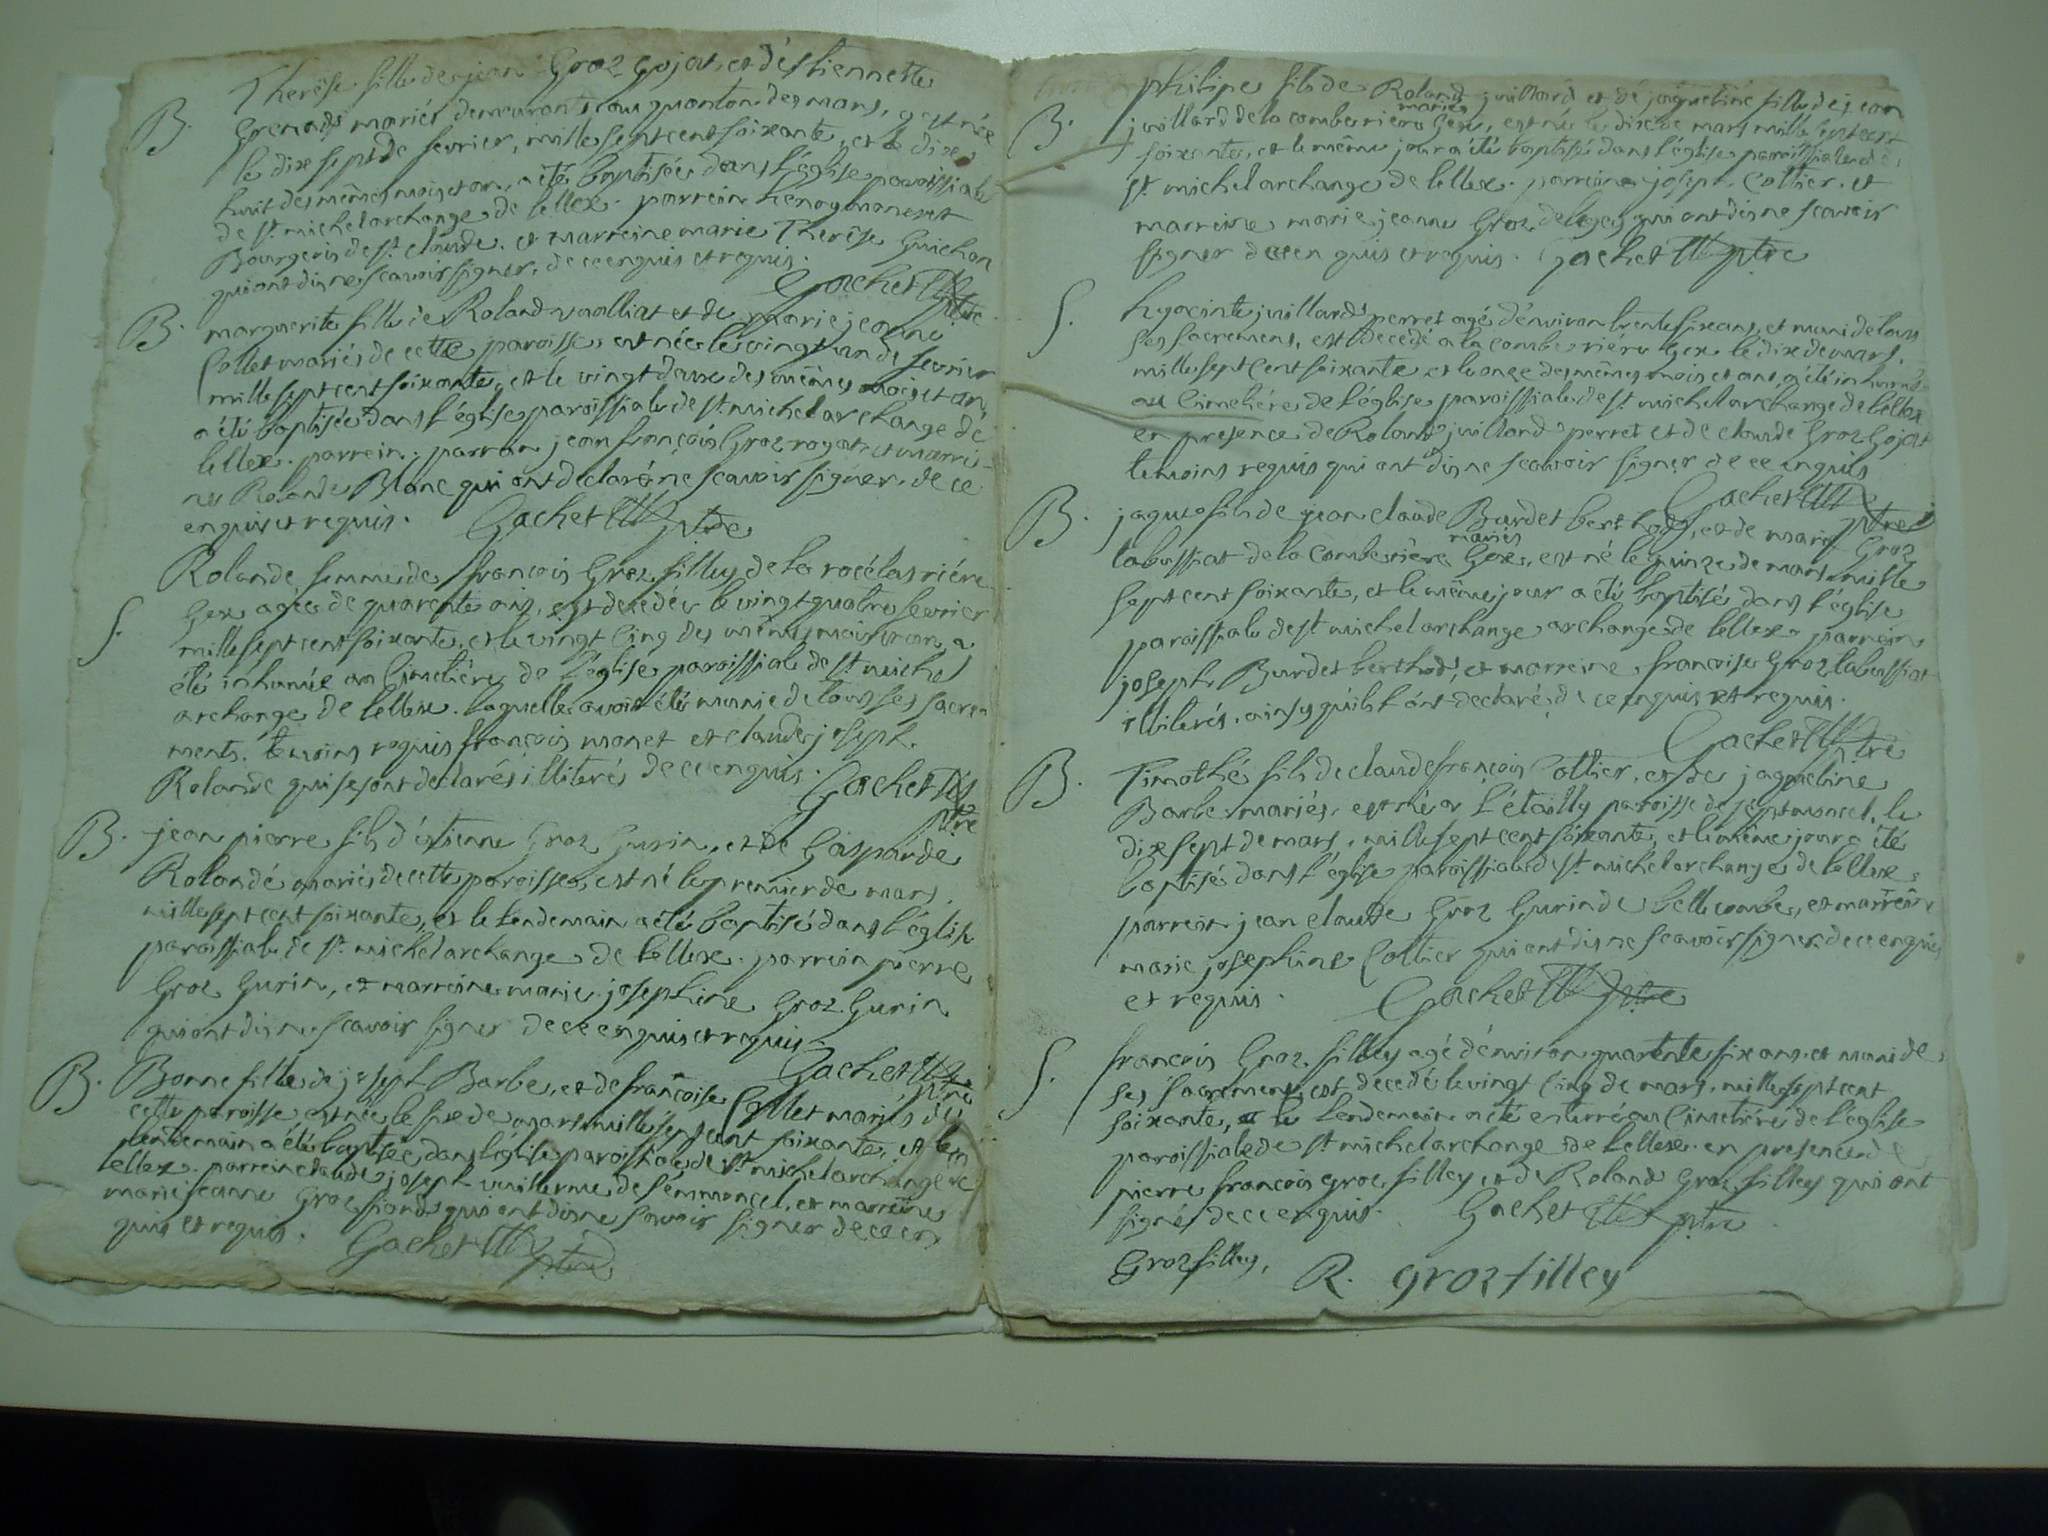 Therése fille de jean Groz Gojat, et d'éstiennette
B. Grenard mariés demeurants au quanton des mars, y est née
le dix sept de fevrier, mille sept cent soixante, et le dix
huit des mêmes mois et an, a été baptisée dans l'église paroissiale
de st. michel archange de lellex. parrein
Bourgeois de st. claude. et marreine marie Therêse Guichon
qui ont dis ne scavoir signer, de ce enquis et requis.
Gachet ptre
B. marguerite fille de Roland vuolliat et de marie jeanne
Collet mariés de cette paroisse, est née le vingt un de fevrier
mille sept cent soixante, et le vingt deux des mêmes mois et an,
a été baptisée dans l'église paroissiale de st. michel archange de
lellex. parrein. parrain jean françois Groz royat et marrei-
ne Rolande Blanc qui ont declaré ne scavoir signer, de ce
enquis et requis. Gachet ptre
Rolande femme de françois Groz filley de la riére
S. Gex agée de quarente ans, est decedée le vingt quatre fevrier
mille sept cent soixante, et le vingt cinq des mêmes mois et an, a
été inhumée au Cimetière de l'église paroissiale de st. michel
archange de lellex. laquelle avoit été munie de tous ses sacre-
ments. temoins requis françois monet et claude joseph
Rolande qui se sont declarés illiterés de ce enquis. Gachet
ptre
B. jean pierre fils d'éstienne Groz Gurin, et de Gasparde
Rolande mariés de cette paroisse, est né le premier de mars,
mille sept cent soixante, et le lendemain a été baptisé dans l'église
paroissiale de st. michel archange de lellex. parrein pierre
Groz Gurin, et marreine marie josephine Groz Gurin
qui ont dis ne scavoir signer de ce enquis et requis.
Gachet ptre
B. Bonne fille de joseph Barbe, et de françoise Collet mariés de
cette paroisse, est née le six de mars mille sept cent soixante, et le
lendemain a été baptisée dans l'église paroissiale de st. michel archange de
lellex. parrein claude joseph vuillerme de semmoncel, et marreine
marie jeanne Groz fiand qui ont dis ne scavoir signer de ce en
quis et requis. Gachet ptre
philipe fils de Roland juillard et de jaqueline fille de jean
B. juillard de la combe riere Gex, mariés est né le dix de mars mille sept cent
soixante, et le même jour a été baptisé dans l'église paroissiale de
st. michel archange de lellex. parreine joseph Collier. et
marreine marie jeanne Groz qui ont dis ne scavoir
signer de ce en quis et requis. Gachet ptre
S. hyacinte juillard perret agé d'énviron trente six ans, et muni de tous
ses sacremens, est decedé a la combe riére Gex le dix de mars.
mille sept cent soixante et le onze des mêmes mois et ans, a été inhumé
au Cimetiére de l'église paroissiale de st. michel archange de lellex
en presence de Roland juillard perret et de claude Groz Gojat
temoins requis qui ont dis ne scavoir signer de ce enquis
Gachet ptre
B. jaques fils de jean claude Burdet berthod, et de marie Groz
labussiat de la Combe riére Gex, mariés est né le quinze de mars mille
sept cent soixante, et le même jour a été baptisé dans l'église
paroissiale de st. michel archange archange de lellex. parrein
joseph Burdet berthod, et marreine françoise Groz labussiat
illiterés. ainsy qu'ils l'ónt declaré de ce enquis et requis.
Gachet ptre
B. Timothé fils de claude françois Collier, et de jaqueline
Barbe mariés, est né a l'étailly paroisse de septmoncel, le
dix sept de mars, mille sept cent soixante, et le même jour a été
baptisé dans l'église paroissiale de st. michel archange de lellex,
parrein jean claude Groz Gurin de bellecombe, et marreine
marie josephine Collier qui ont dis ne scavoir signer, de ce enquis
et requis. Gachet ptre
S. francois Groz filley agé d'énviron quarente six ans et muni de
ses sacremens, est decedé le vingt cinq de mars, mille sept cent
soixante, et le lendemain a été enterré au Cimetiére de l'église
paroissiale de st. michel archange de lellex. en presence de
pierre françois Groz filley, et de Roland Groz filley qui ont
signé de ce enquis. Gachet ptre
Groz filley, R. groz filley